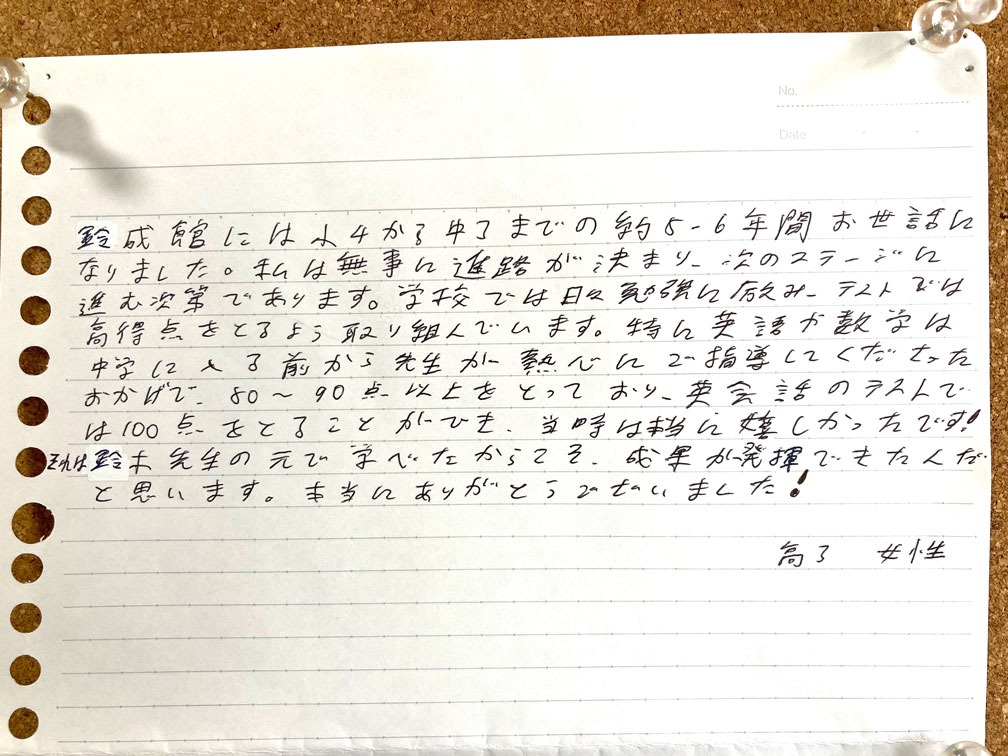 No.
Date
鈴成館には小4から中3までの約5-6年間お世話に
なりました。私は無事に進路が決まり、次のステージに
進む次第であります。学校では日々勉強に励み、テストでは
高得点をとるよう取り組んでいます。特に英語か数学は
中学に入る前から先生が熱心にご指導してくださった
おかげで、80〜90点以上をとっており、英会話のテストで
は100点をとることができ、当時は本当に嬉しかったです!
それは鈴木先生の元で学べたからこそ、成果が発揮できたんだ
と思います。本当にありがとうございました!
高3 女性